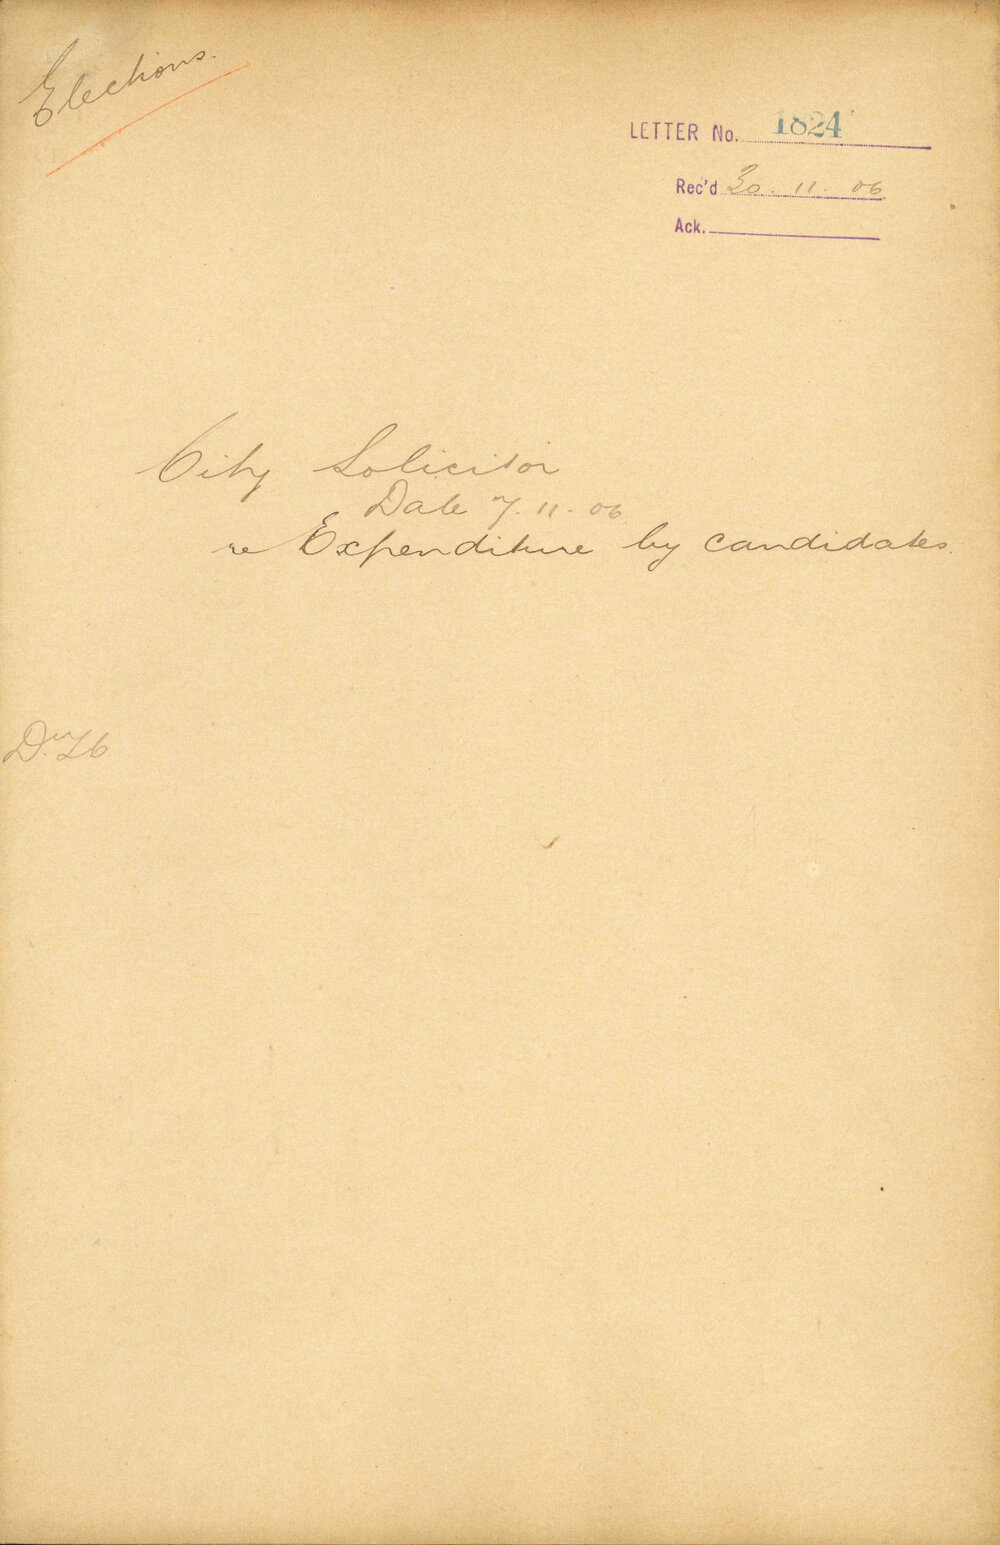 Elections.
LETTER No. 1824
Rec'd 30. 11. 06
Ack.
City Solicitor
Date 7. 11. 06
re Expenditure by candidates.